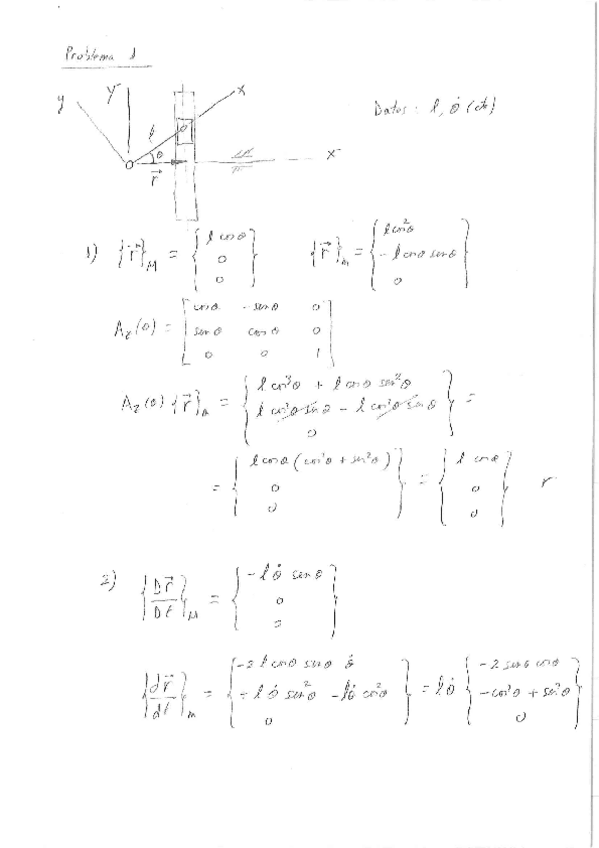 Problema 1
y Y x
Datos: l, θ̇ (cte)
l θ X
r⃗
1) {r⃗}_M = {l cosθ, 0, 0} {r⃗}_m = {l cos²θ, - l cosθ senθ, 0}
A_z(θ) = [cosθ -senθ 0; senθ cosθ 0; 0 0 1]
A_z(θ) {r⃗}_m = {l cos³θ + l cosθ sen²θ, l cos²θ senθ - l cos²θ senθ, 0} =
= {l cosθ (cos²θ + sen²θ), 0, 0} = {l cosθ, 0, 0} r
2) {Dr⃗/Dt}_M = {-l θ̇ senθ, 0, 0}
{dr⃗/dt}_m = {-2 l cosθ senθ θ̇, + l θ̇ sen²θ - l θ̇ cos²θ, 0} = l θ̇ {-2 senθ cosθ, -cos²θ + sen²θ, 0}